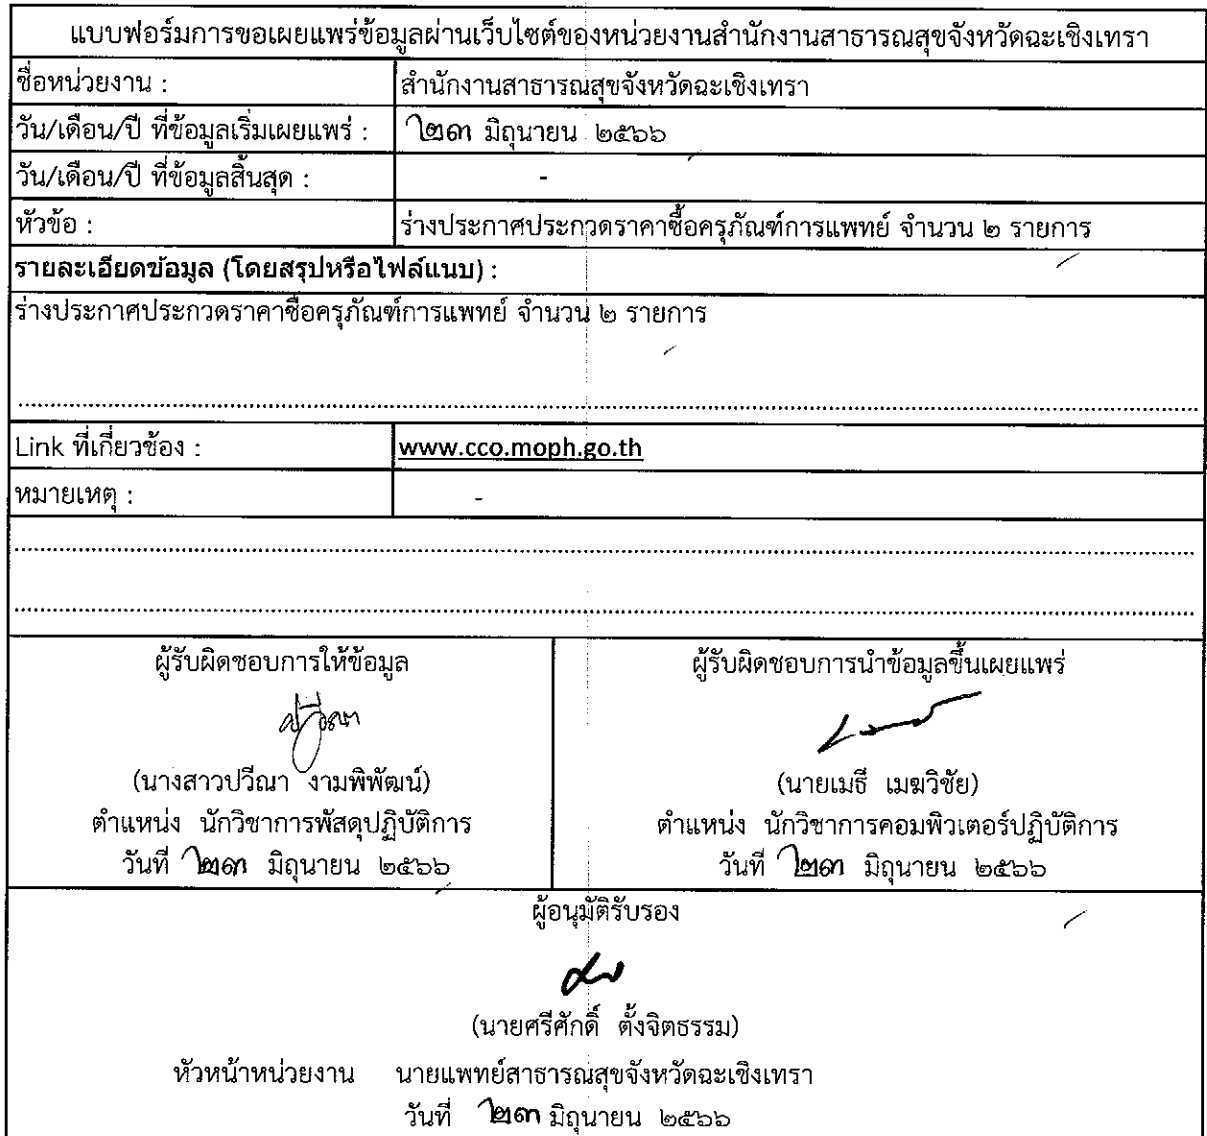 แบบฟอร์มการขอเผยแพร่ข้อมูลผ่านเว็บไซต์ของหน่วยงานสำนักงานสาธารณสุขจังหวัดฉะเชิงเทรา
ชื่อหน่วยงาน : สำนักงานสาธารณสุขจังหวัดฉะเชิงเทรา
วัน/เดือน/ปี ที่ข้อมูลเริ่มเผยแพร่ : ๒๓ มิถุนายน ๒๕๖๖
วัน/เดือน/ปี ที่ข้อมูลสิ้นสุด : -
หัวข้อ : ร่างประกาศประกวดราคาซื้อครุภัณฑ์การแพทย์ จำนวน ๒ รายการ
รายละเอียดข้อมูล (โดยสรุปหรือไฟล์แนบ) :
ร่างประกาศประกวดราคาซื้อครุภัณฑ์การแพทย์ จำนวน ๒ รายการ
Link ที่เกี่ยวข้อง : www.cco.moph.go.th
หมายเหตุ : -
ผู้รับผิดชอบการให้ข้อมูล
ปวีณา
(นางสาวปวีณา งามพิพัฒน์)
ตำแหน่ง นักวิชาการพัสดุปฏิบัติการ
วันที่ ๒๓ มิถุนายน ๒๕๖๖
ผู้รับผิดชอบการนำข้อมูลขึ้นเผยแพร่
(นายเมธี เมฆวิชัย)
ตำแหน่ง นักวิชาการคอมพิวเตอร์ปฏิบัติการ
วันที่ ๒๓ มิถุนายน ๒๕๖๖
ผู้อนุมัติรับรอง
(นายศรีศักดิ์ ตั้งจิตธรรม)
หัวหน้าหน่วยงาน นายแพทย์สาธารณสุขจังหวัดฉะเชิงเทรา
วันที่ ๒๓ มิถุนายน ๒๕๖๖